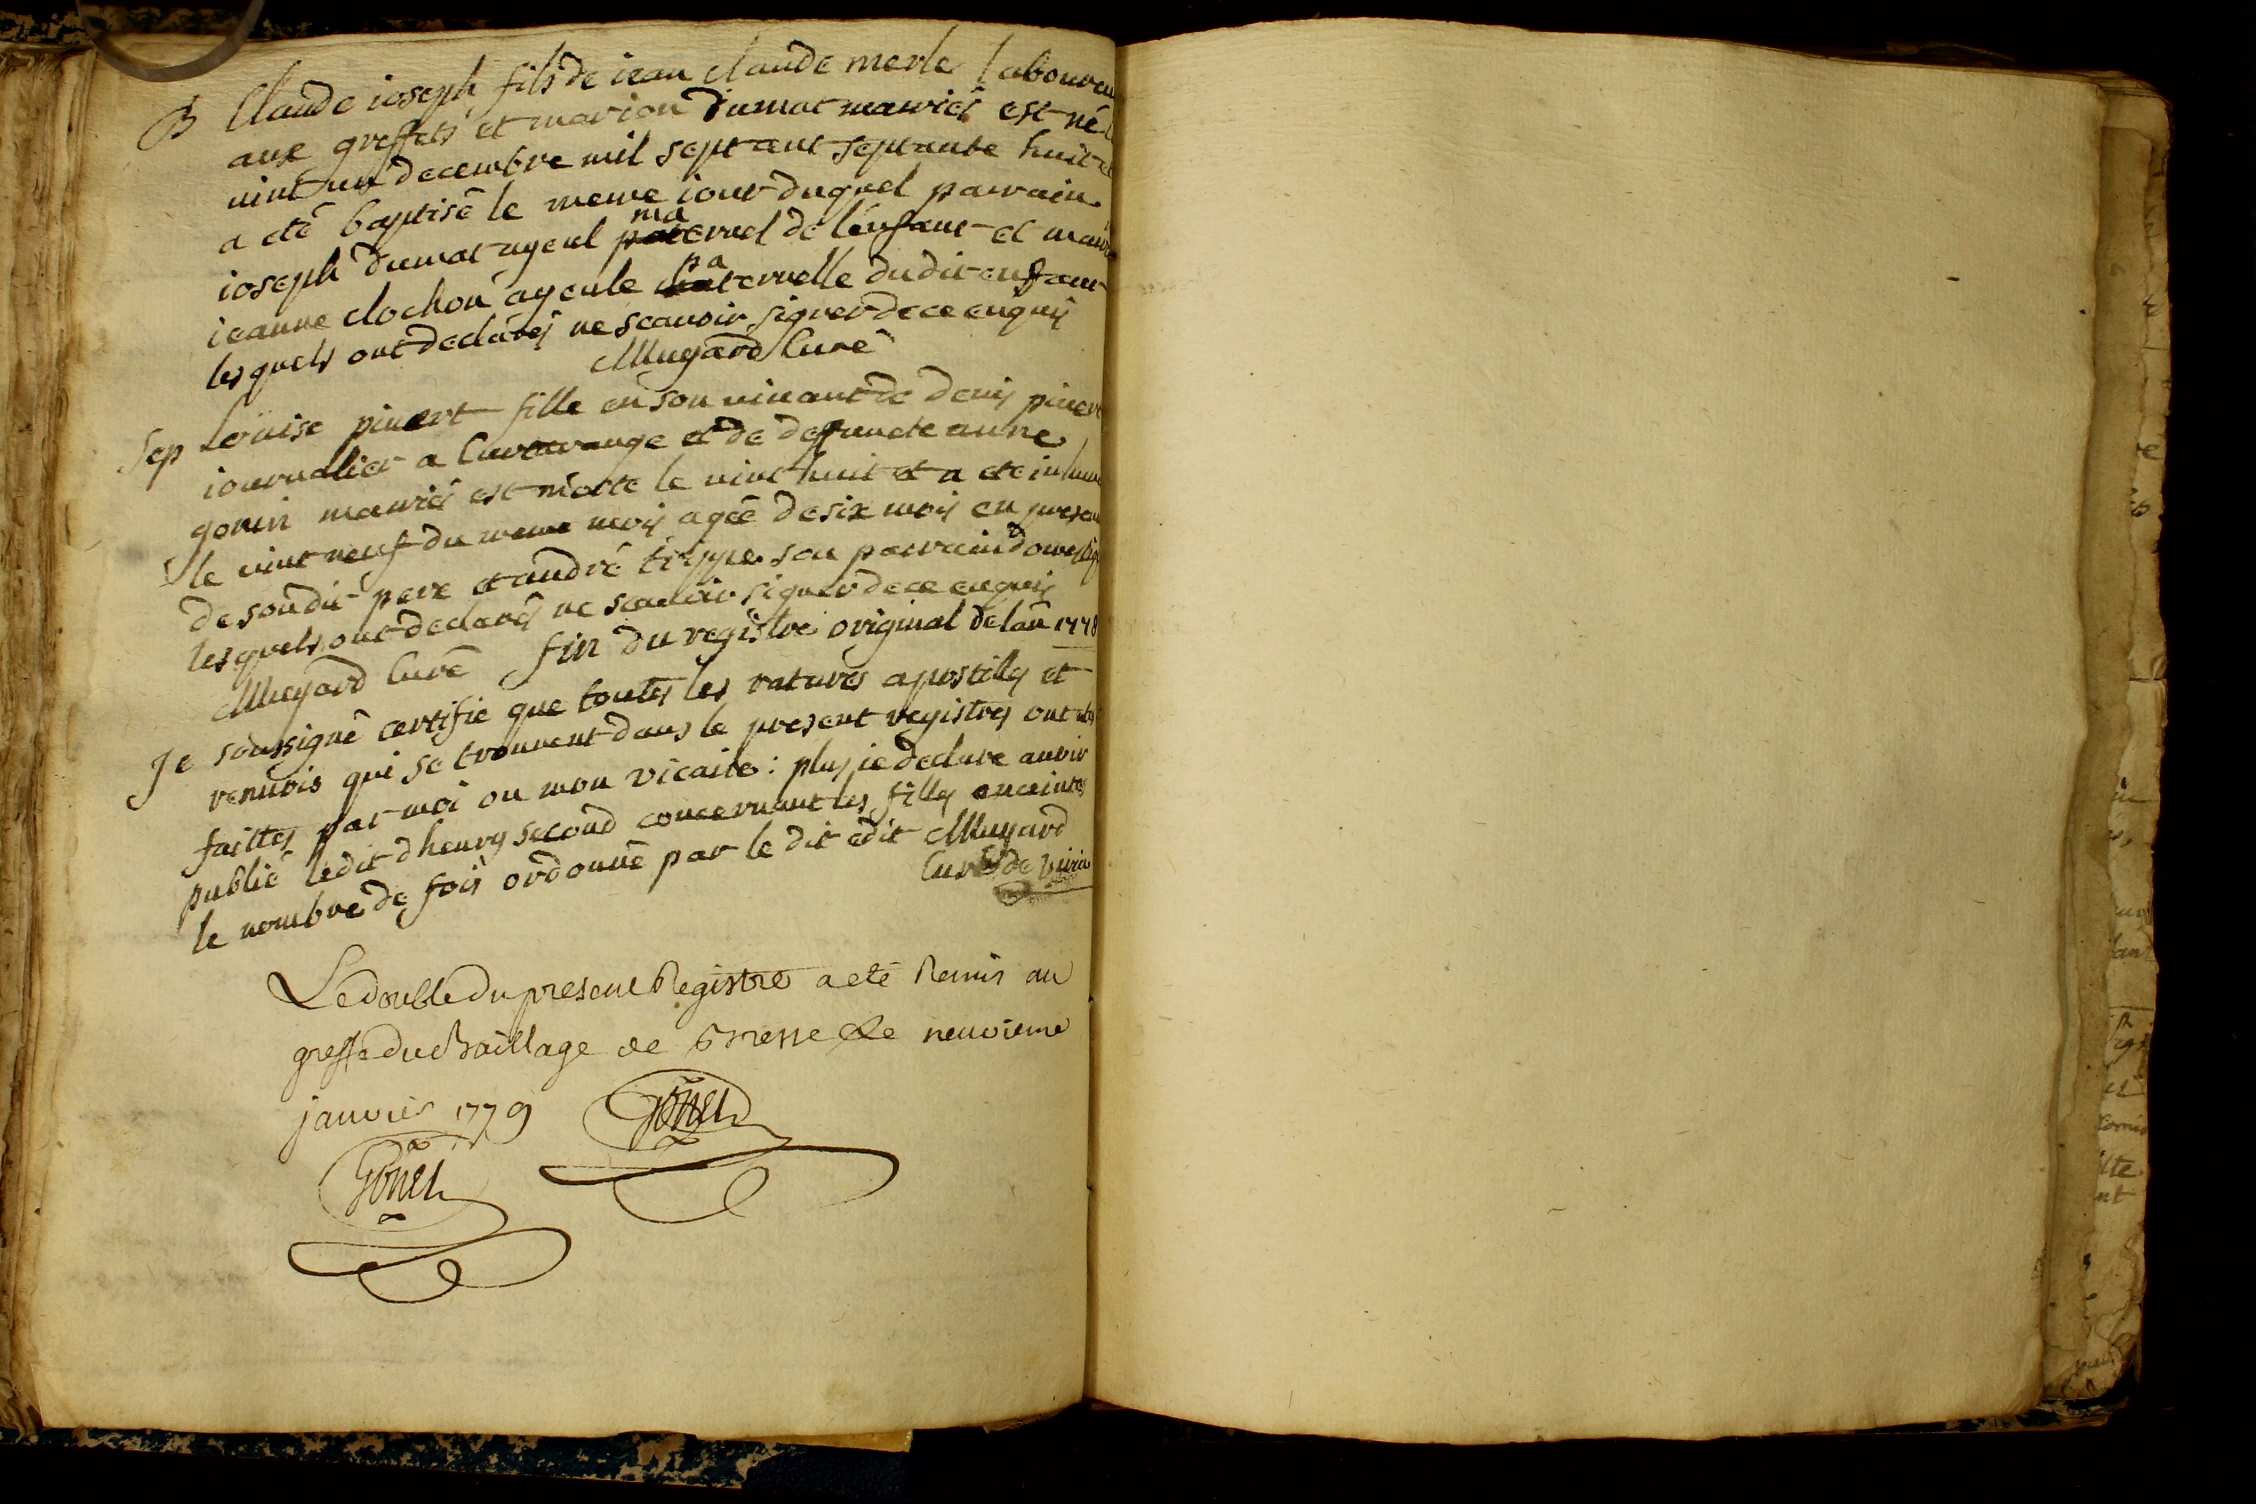 B Claude ioseph fils de iean claude merle laboureu
aux greffets et marion dumat mariés est né l
vint un decembre mil sept cent septante huit et
a eté baptisé le meme iour duquel parrain
ioseph dumat ayeul maternel de lenfant et marr
ieanne clochon ayeule paternelle dudit enfant
lesquels ont declarés ne scavoir signer de ce enquis
Muyard Curé
Sep Loüise pivert fille en son vivant de denis pivert
iournalier a et de defuncte anne
gonin mariés est morte le vint huit et a eté inhum
le vint neuf du meme mois agée de six mois en presen
de son dit pere et andré trippe son parrain
lesquels ont declarés ne scavoir signer de ce enquis
Muyard Curé fin du registre original de lan 1778
Je soussigné certifie que toutes les ratures apostilles et
renvois qui se trouvent dans le present registres ont etés
faittes par moi ou mon vicaire : plus ie declare avoir
publié ledit dhenry second concernant les filles enceintes
le nombre de fois ordonné par le dit edit Muyard
Curé de
Le double du present Registre a eté Remis au
greffe du Baillage de Bresse le neuvieme
janvier 1779